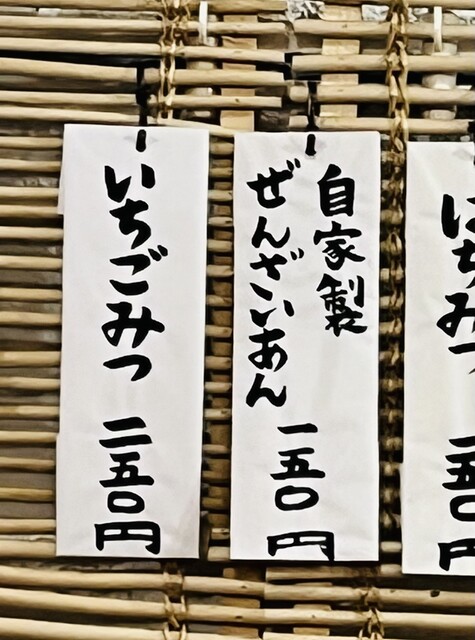 はちみつ
自家製
ぜんざいあん
一五〇円
いちごみつ
二五〇円